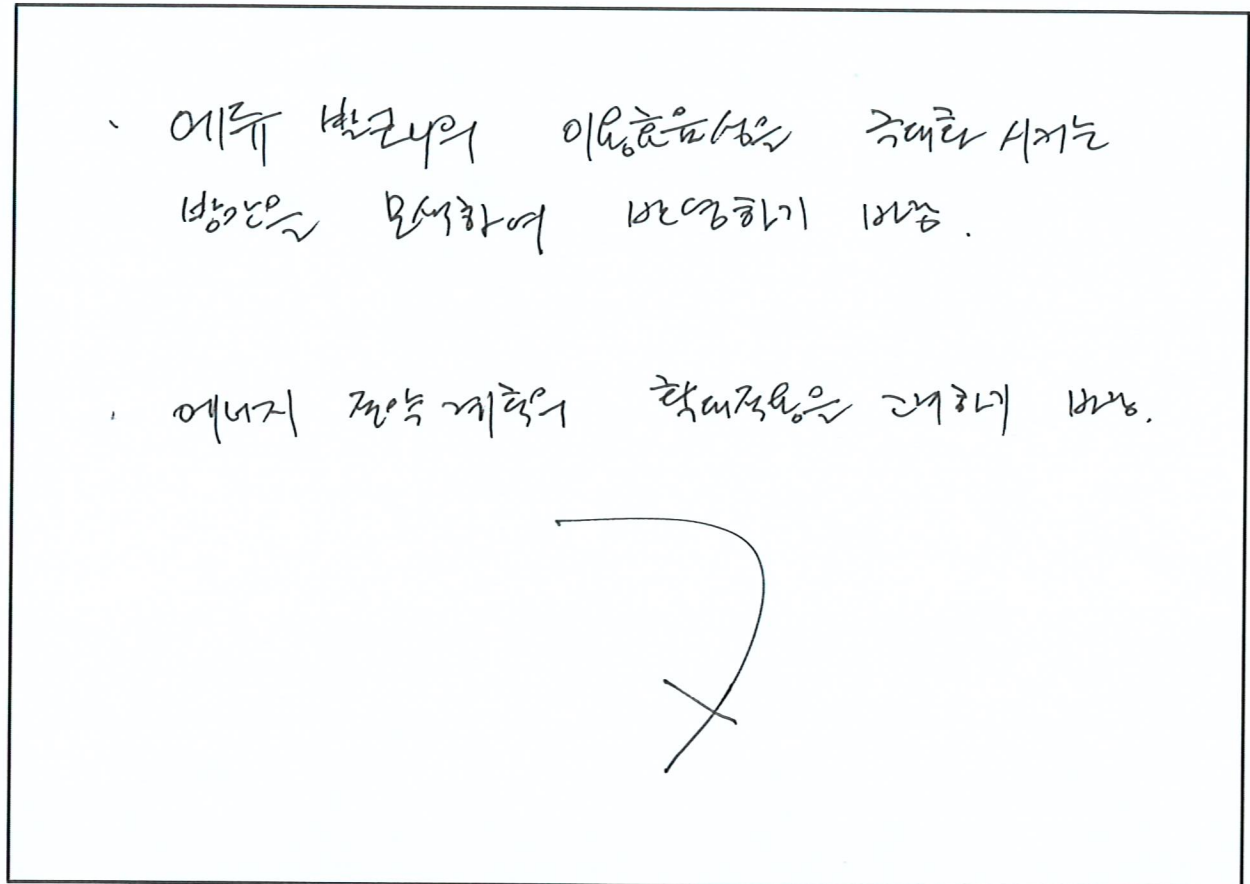 · 에듀 발코니의 이용효율성을 극대화 시키는
방안을 모색하여 반영하기 바람.
· 에너지 절약 계획의 확대적용을 고려하기 바람.